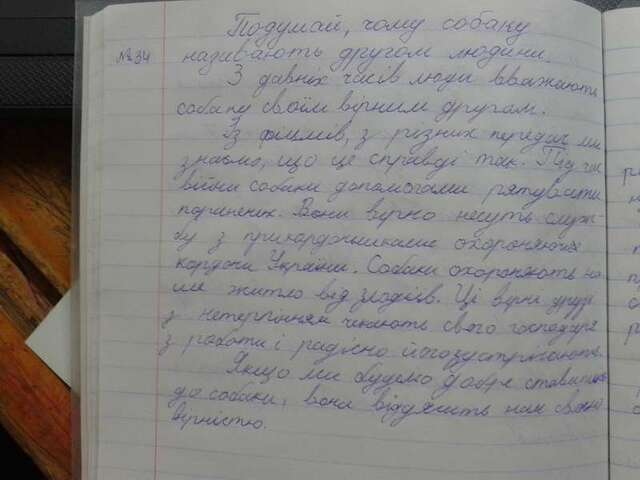 Подумай, чому собаку
№34 називають другом людини.
З давніх часів люди вважають
собаку своїм вірним другом.
Із фільмів, з різних передач ми
знаємо, що це справді так. Під час
війни собаки допомагали рятувати
поранених. Вони вірно несуть служ-
бу з прикордонниками охороняючи
кордони України. Собаки охороняють на-
ше житло від злодіїв. Ці вірні друзі
з нетерпінням чекають свого господаря
з роботи і радісно його зустрічають.
Якщо ми будемо добре ставитись
до собаки, вона віддячить нам своєю
вірністю.